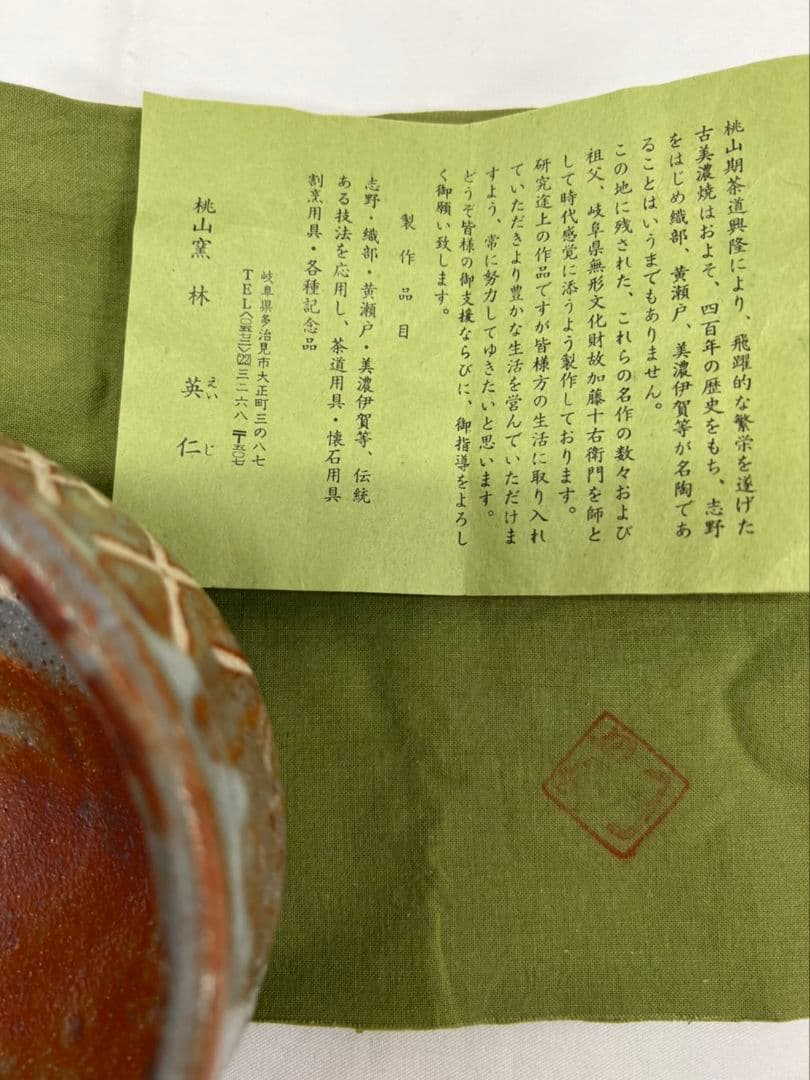 桃山期茶道興隆により、飛躍的な繁栄を遂げた
古美濃焼はおよそ、四百年の歴史をもち、志野
をはじめ織部、黄瀬戸、美濃伊賀等が名陶であ
ることはいうまでもありません。
この地に残された、これらの名作の数々および
祖父、岐阜県無形文化財故加藤十右衛門を師と
して時代感覚に添うよう製作しております。
研究途上の作品ですが皆様方の生活に取り入れ
ていただきより豊かな生活を営んでいただけま
すよう、常に努力してゆきたいと思います。
どうぞ皆様の御支援ならびに、御指導をよろし
く御願い致します。
製作品目
志野・織部・黄瀬戸・美濃伊賀等、伝統
ある技法を応用し、茶道用具・懐石用具
割烹用具・各種記念品
岐阜県多治見市大正町三の八七
TEL〈〇五七二〉㉒三二六八 〒五〇七
桃山窯 林 英仁
えいじ